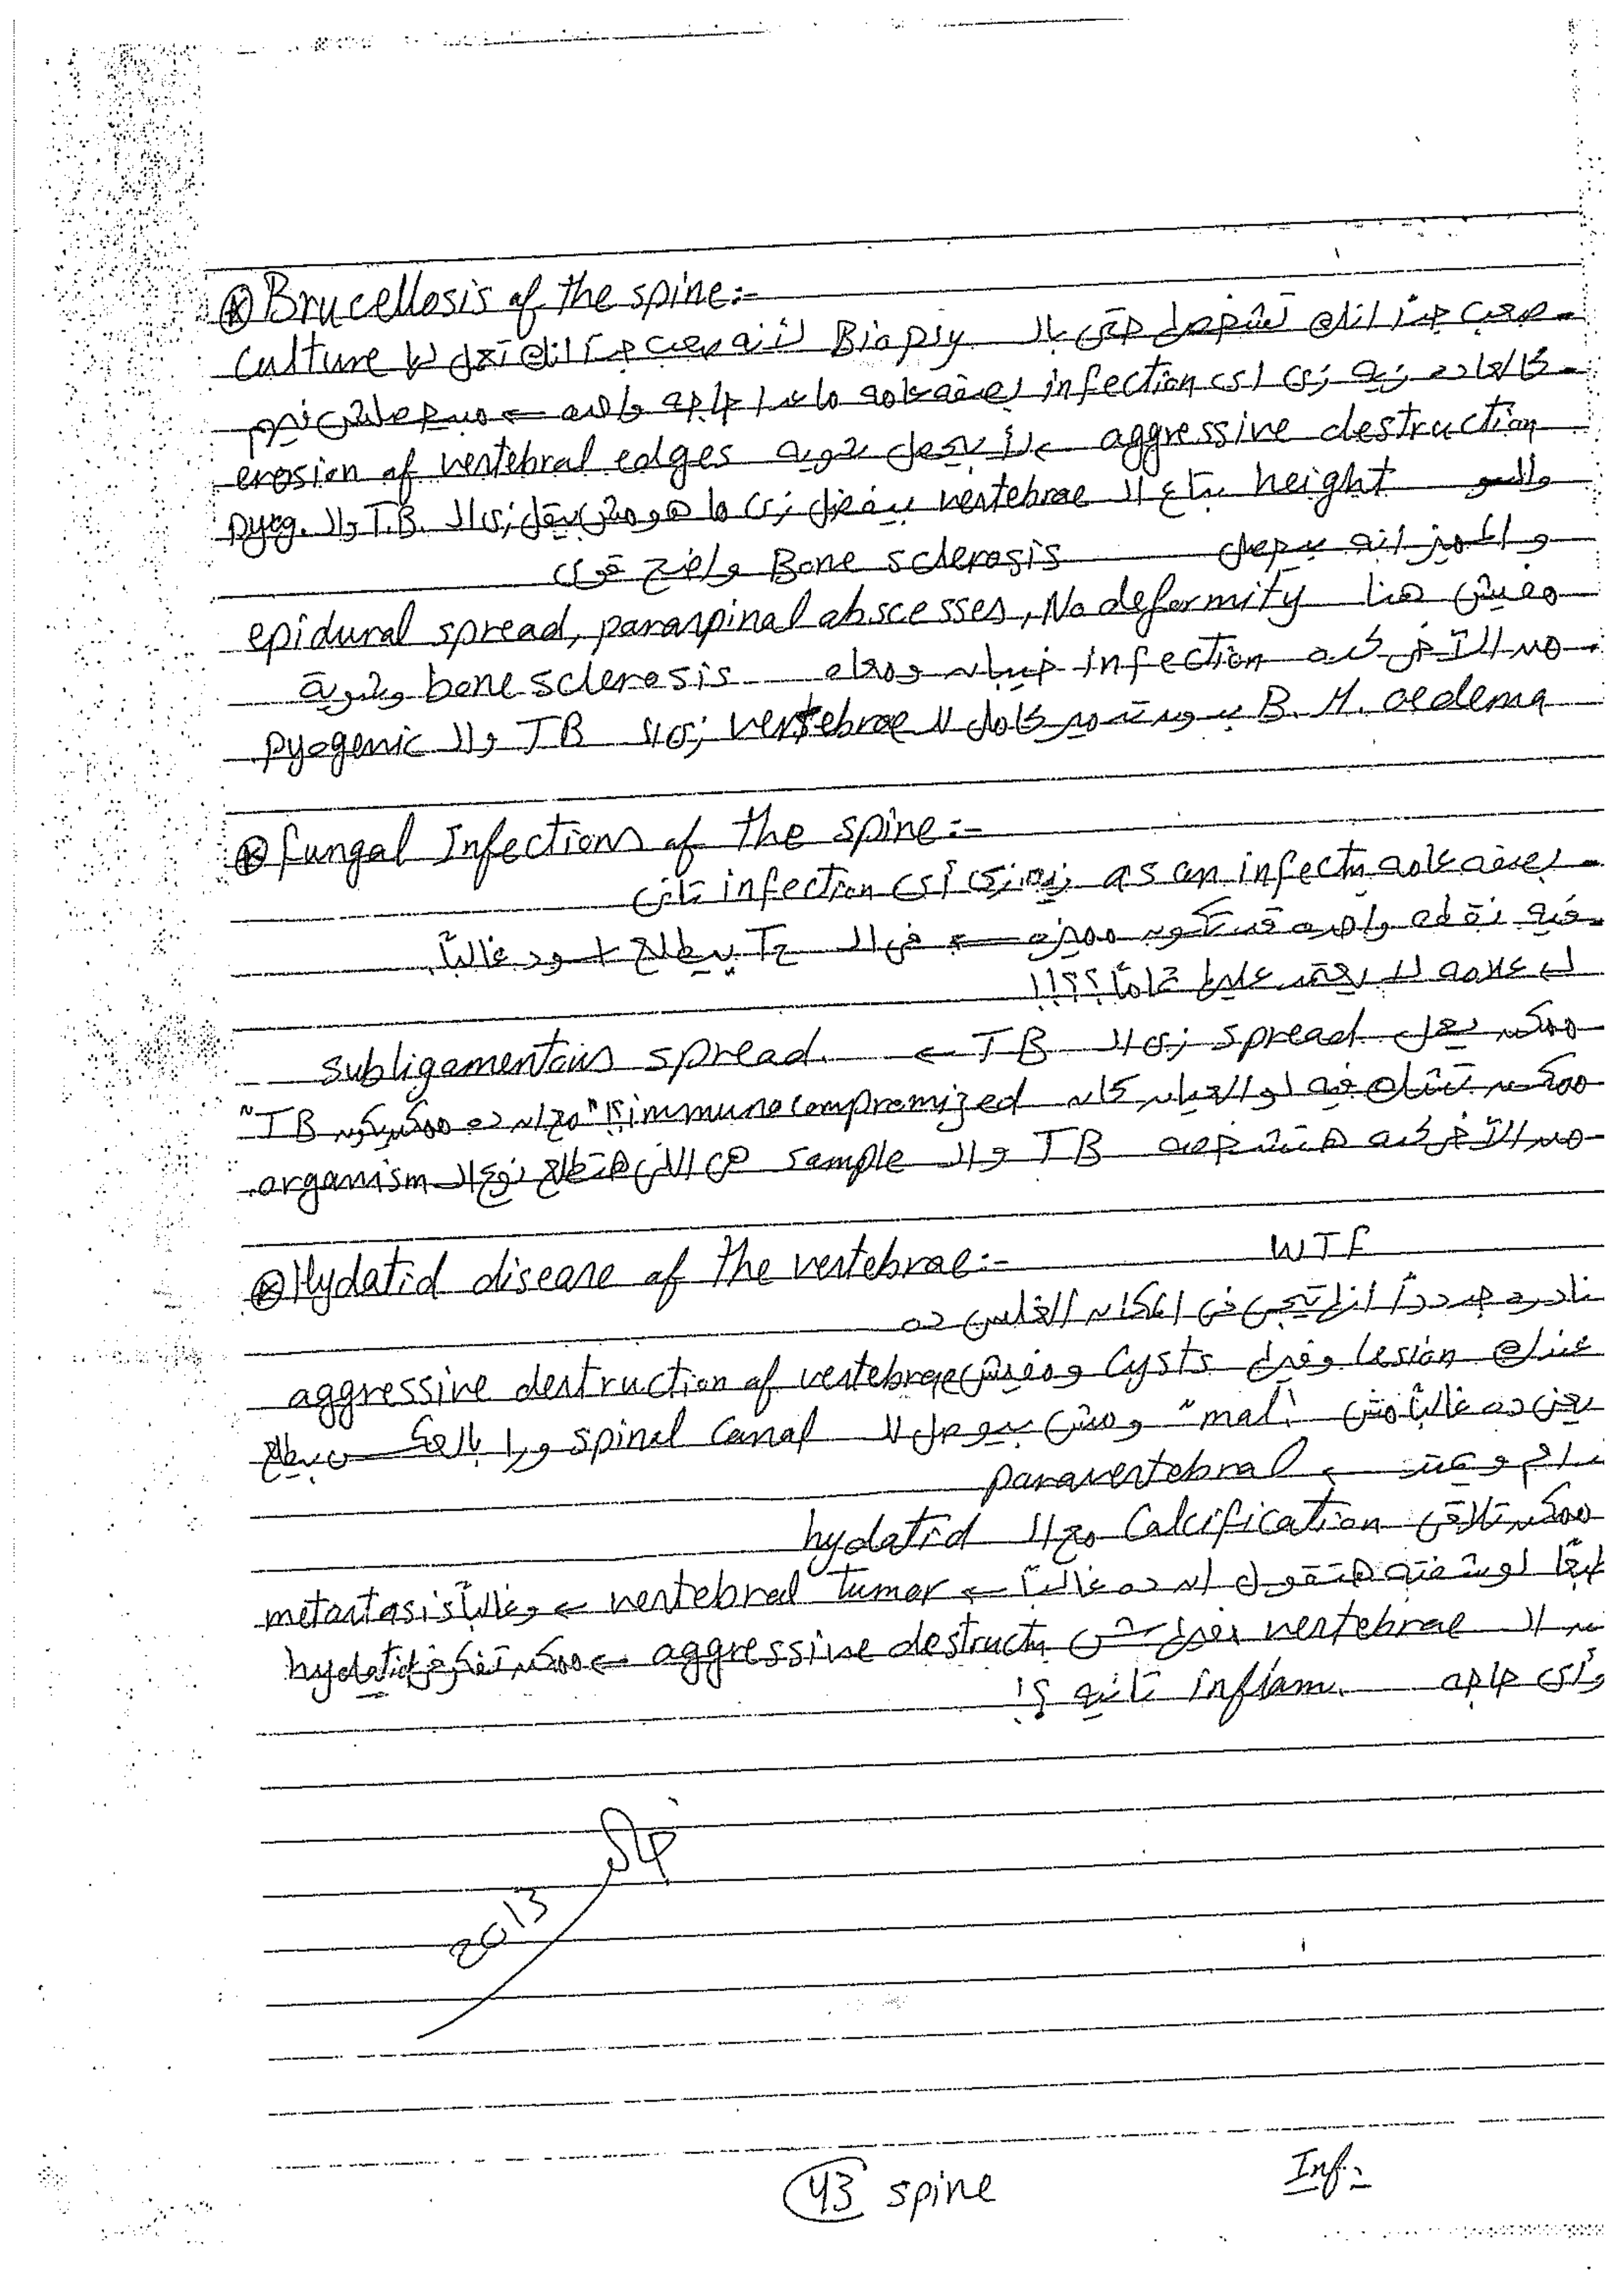 Brucellosis of the spine:-
- صعب جداً انك تشخص حتى بالـ Biopsy لأنه صعب جداً انك تعمل لها culture
- كالعاده زيه زى اى infection بصفه عامه ماعدا حاجه واحده ← مبيحصلش فيهم
aggressive destruction بل يحصل شوية erosion of vertebral edges
والـ height بتاع الـ vertebrae بيفضل زى ما هو مش بيقل زى الـ T.B. والـ pyog.
و المميز انه بيحصل Bone sclerosis واضح قوى
مفيش هنا epidural spread, paraspinal abscesses, No deformity
- من الآخر كده infection خيبان ومعاه bone sclerosis وشوية
B.M. oedema بدون تدمير كامل للـ vertebrae زى الـ TB والـ pyogenic
fungal Infections of the spine:-
- بصفه عامه as an infectn زيه زى أى infection تانى
- فيه نقطه واحده قد تكون مميزه ← فى الـ T2 بيطلع اسود غالباً
ل علامه لا يعتمد عليها تماماً؟؟!!
ممكن يعمل spread زى الـ TB ← subligamentous spread.
ممكن تشك فيه لو العيان كان immunocompromized؟! "مع ان ده ممكن يكون TB"
- من الآخر كده هتشخصه TB والـ sample هى اللى هتطلع نوع الـ organism.
Hydatid disease of the vertebrae:- WTF
نادره جدددداً انها تيجى فى المكان الغلس ده
عندك lesion وفيها cysts ومفيش aggressive destruction of vertebrae
يعنى ده غالباً مش "mal." ومش بيوصل للـ spinal canal ورا بالعكس بيطلع
← paravertebral
ممكن تلاقى calcification مع الـ hydatid
طبعاً لو شفته هتقول ان ده غالباً ← vertebral tumor ← وغالباً metastasis
الـ vertebrae مفيهاش aggressive destructn ← ممكن تفكر فى hydatid
وأى حاجه inflam. تانيه ؟!
2013
43 spine
Inf: